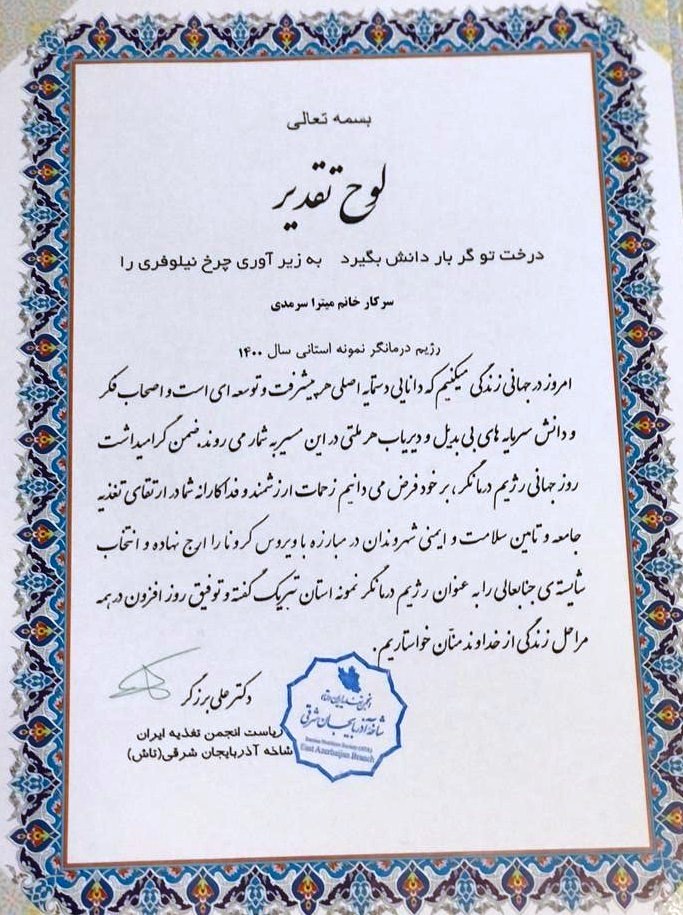 بسمه تعالی
لوح تقدیر
درخت تو گر بار دانش بگیرد به زیر آوری چرخ نیلوفری را
سرکار خانم میترا سرمدی
رژیم درمانگر نمونه استانی سال ۱۴۰۰
امروز در جهانی زندگی میکنیم که دانایی دستمایه اصلی هر پیشرفت و توسعه ای است و اصحاب فکر
و دانش سرمایه های بی بدیل و دیریاب هر ملتی در این مسیر به شمار می روند. ضمن گرامیداشت
روز جهانی رژیم درمانگر، بر خود فرض می دانیم زحمات ارزشمند و فداکارانه شما در ارتقای تغذیه
جامعه و تامین سلامت و ایمنی شهروندان در مبارزه با ویروس کرونا را ارج نهاده و انتخاب
شایسته ی جنابعالی را به عنوان رژیم درمانگر نمونه استان تبریک گفته و توفیق روز افزون در همه
مراحل زندگی از خداوند منّان خواستاریم.
دکتر علی برزگر
ریاست انجمن تغذیه ایران
شاخه آذربایجان شرقی(تاش)
شاخه آذربایجان شرقی
East Azarbaijan Branch